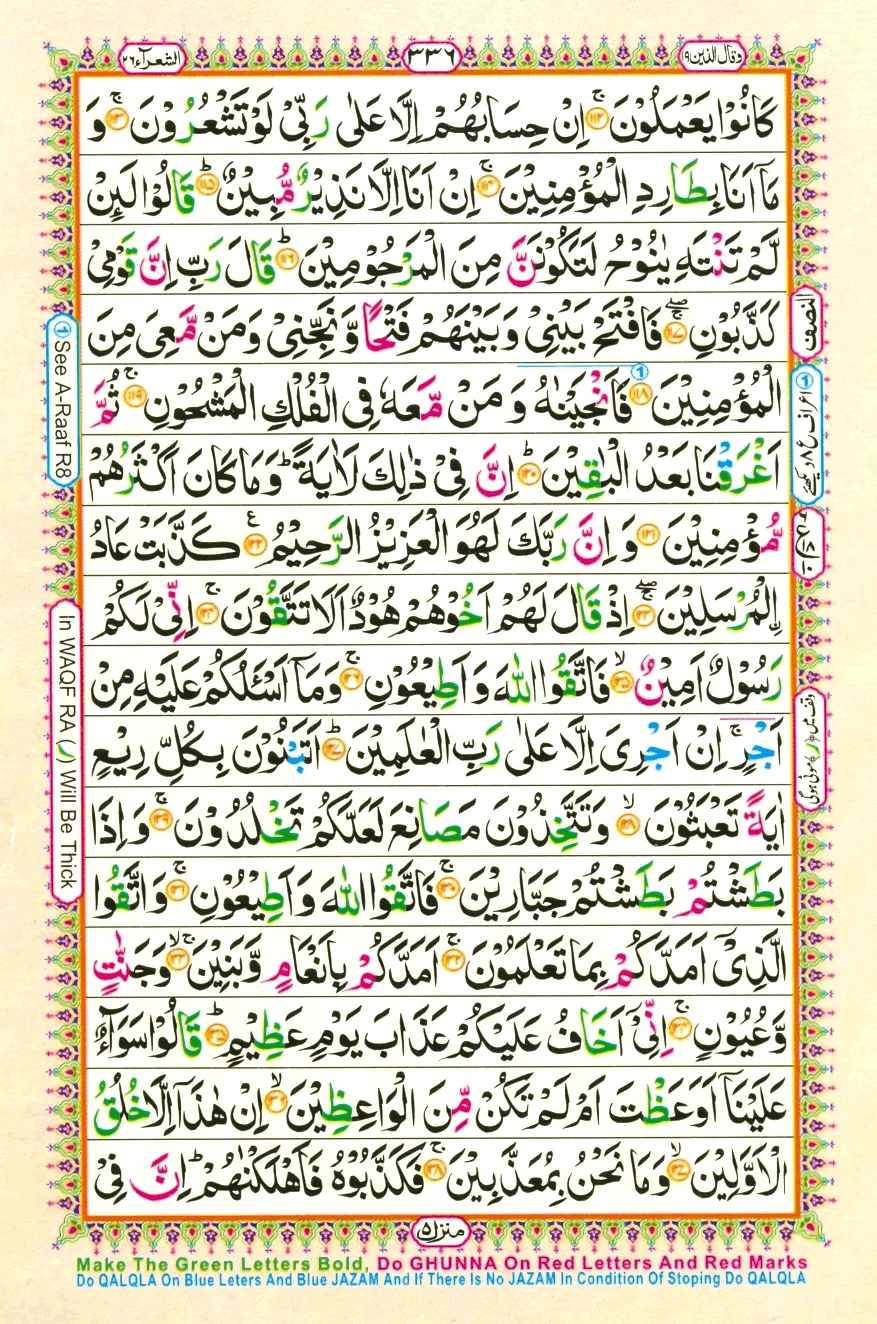 وقال الذین ۱۹
۳۳۶
الشعرآء ۲۶
كَانُوْا يَعْمَلُوْنَ ۚ﴿۱۱۲﴾ اِنْ حِسَابُهُمْ اِلَّا عَلٰى رَبِّىْ لَوْ تَشْعُرُوْنَ ۚ﴿۱۱۳﴾ وَ
مَاۤ اَنَا بِطَارِدِ الْمُؤْمِنِيْنَ ۚ﴿۱۱۴﴾ اِنْ اَنَا اِلَّا نَذِيْرٌ مُّبِيْنٌ ؕ﴿۱۱۵﴾ قَالُوْا لَىِٕنْ
لَّمْ تَنْتَهِ يٰنُوْحُ لَتَكُوْنَنَّ مِنَ الْمَرْجُوْمِيْنَ ؕ﴿۱۱۶﴾ قَالَ رَبِّ اِنَّ قَوْمِىْ
كَذَّبُوْنِ ۖۚ﴿۱۱۷﴾ فَافْتَحْ بَيْنِىْ وَبَيْنَهُمْ فَتْحًا وَّنَجِّنِىْ وَمَنْ مَّعِىَ مِنَ
الْمُؤْمِنِيْنَ ﴿۱۱۸﴾ فَاَنْجَيْنٰهُ وَ مَنْ مَّعَهٗ فِى الْفُلْكِ الْمَشْحُوْنِ ۚ﴿۱۱۹﴾ ثُمَّ
اَغْرَقْنَا بَعْدُ الْبٰقِيْنَ ؕ﴿۱۲۰﴾ اِنَّ فِىْ ذٰلِكَ لَاٰيَةً ؕ وَمَا كَانَ اَكْثَرُهُمْ
مُّؤْمِنِيْنَ ﴿۱۲۱﴾ وَ اِنَّ رَبَّكَ لَهُوَ الْعَزِيْزُ الرَّحِيْمُ ﴿۱۲۲﴾ ع كَذَّبَتْ عَادُ
اۨلْمُرْسَلِيْنَ ۖۚ﴿۱۲۳﴾ اِذْ قَالَ لَهُمْ اَخُوْهُمْ هُوْدٌ اَلَا تَتَّقُوْنَ ۚ﴿۱۲۴﴾ اِنِّىْ لَكُمْ
رَسُوْلٌ اَمِيْنٌ ۙ﴿۱۲۵﴾ فَاتَّقُوا اللّٰهَ وَ اَطِيْعُوْنِ ۚ﴿۱۲۶﴾ وَمَاۤ اَسْـَٔلُكُمْ عَلَيْهِ مِنْ
اَجْرٍ ۚ اِنْ اَجْرِىَ اِلَّا عَلٰى رَبِّ الْعٰلَمِيْنَ ؕ﴿۱۲۷﴾ اَتَبْنُوْنَ بِكُلِّ رِيْعٍ
اٰيَةً تَعْبَثُوْنَ ۙ﴿۱۲۸﴾ وَتَتَّخِذُوْنَ مَصَانِعَ لَعَلَّكُمْ تَخْلُدُوْنَ ۚ﴿۱۲۹﴾ وَ اِذَا
بَطَشْتُمْ بَطَشْتُمْ جَبَّارِيْنَ ۚ﴿۱۳۰﴾ فَاتَّقُوا اللّٰهَ وَ اَطِيْعُوْنِ ۚ﴿۱۳۱﴾ وَاتَّقُوا
الَّذِىْۤ اَمَدَّكُمْ بِمَا تَعْلَمُوْنَ ۚ﴿۱۳۲﴾ اَمَدَّكُمْ بِاَنْعَامٍ وَّبَنِيْنَ ۚۙ﴿۱۳۳﴾ وَجَنّٰتٍ
وَّعُيُوْنٍ ۚ﴿۱۳۴﴾ اِنِّىْۤ اَخَافُ عَلَيْكُمْ عَذَابَ يَوْمٍ عَظِيْمٍ ؕ﴿۱۳۵﴾ قَالُوْا سَوَآءٌ
عَلَيْنَاۤ اَوَعَظْتَ اَمْ لَمْ تَكُنْ مِّنَ الْوَاعِظِيْنَ ۙ﴿۱۳۶﴾ اِنْ هٰذَاۤ اِلَّا خُلُقُ
الْاَوَّلِيْنَ ۙ﴿۱۳۷﴾ وَمَا نَحْنُ بِمُعَذَّبِيْنَ ۚ﴿۱۳۸﴾ فَكَذَّبُوْهُ فَاَهْلَكْنٰهُمْ ؕ اِنَّ فِىْ
النصف
اعراف ع ۸ دیکھئے
وقف میں (ر) موٹی ہوگی
① See A-Raaf R8
In WAQF RA (ر) Will Be Thick
منزل ۵
Make The Green Letters Bold, Do GHUNNA On Red Letters And Red Marks
Do QALQLA On Blue Leters And Blue JAZAM And If There Is No JAZAM In Condition Of Stoping Do QALQLA